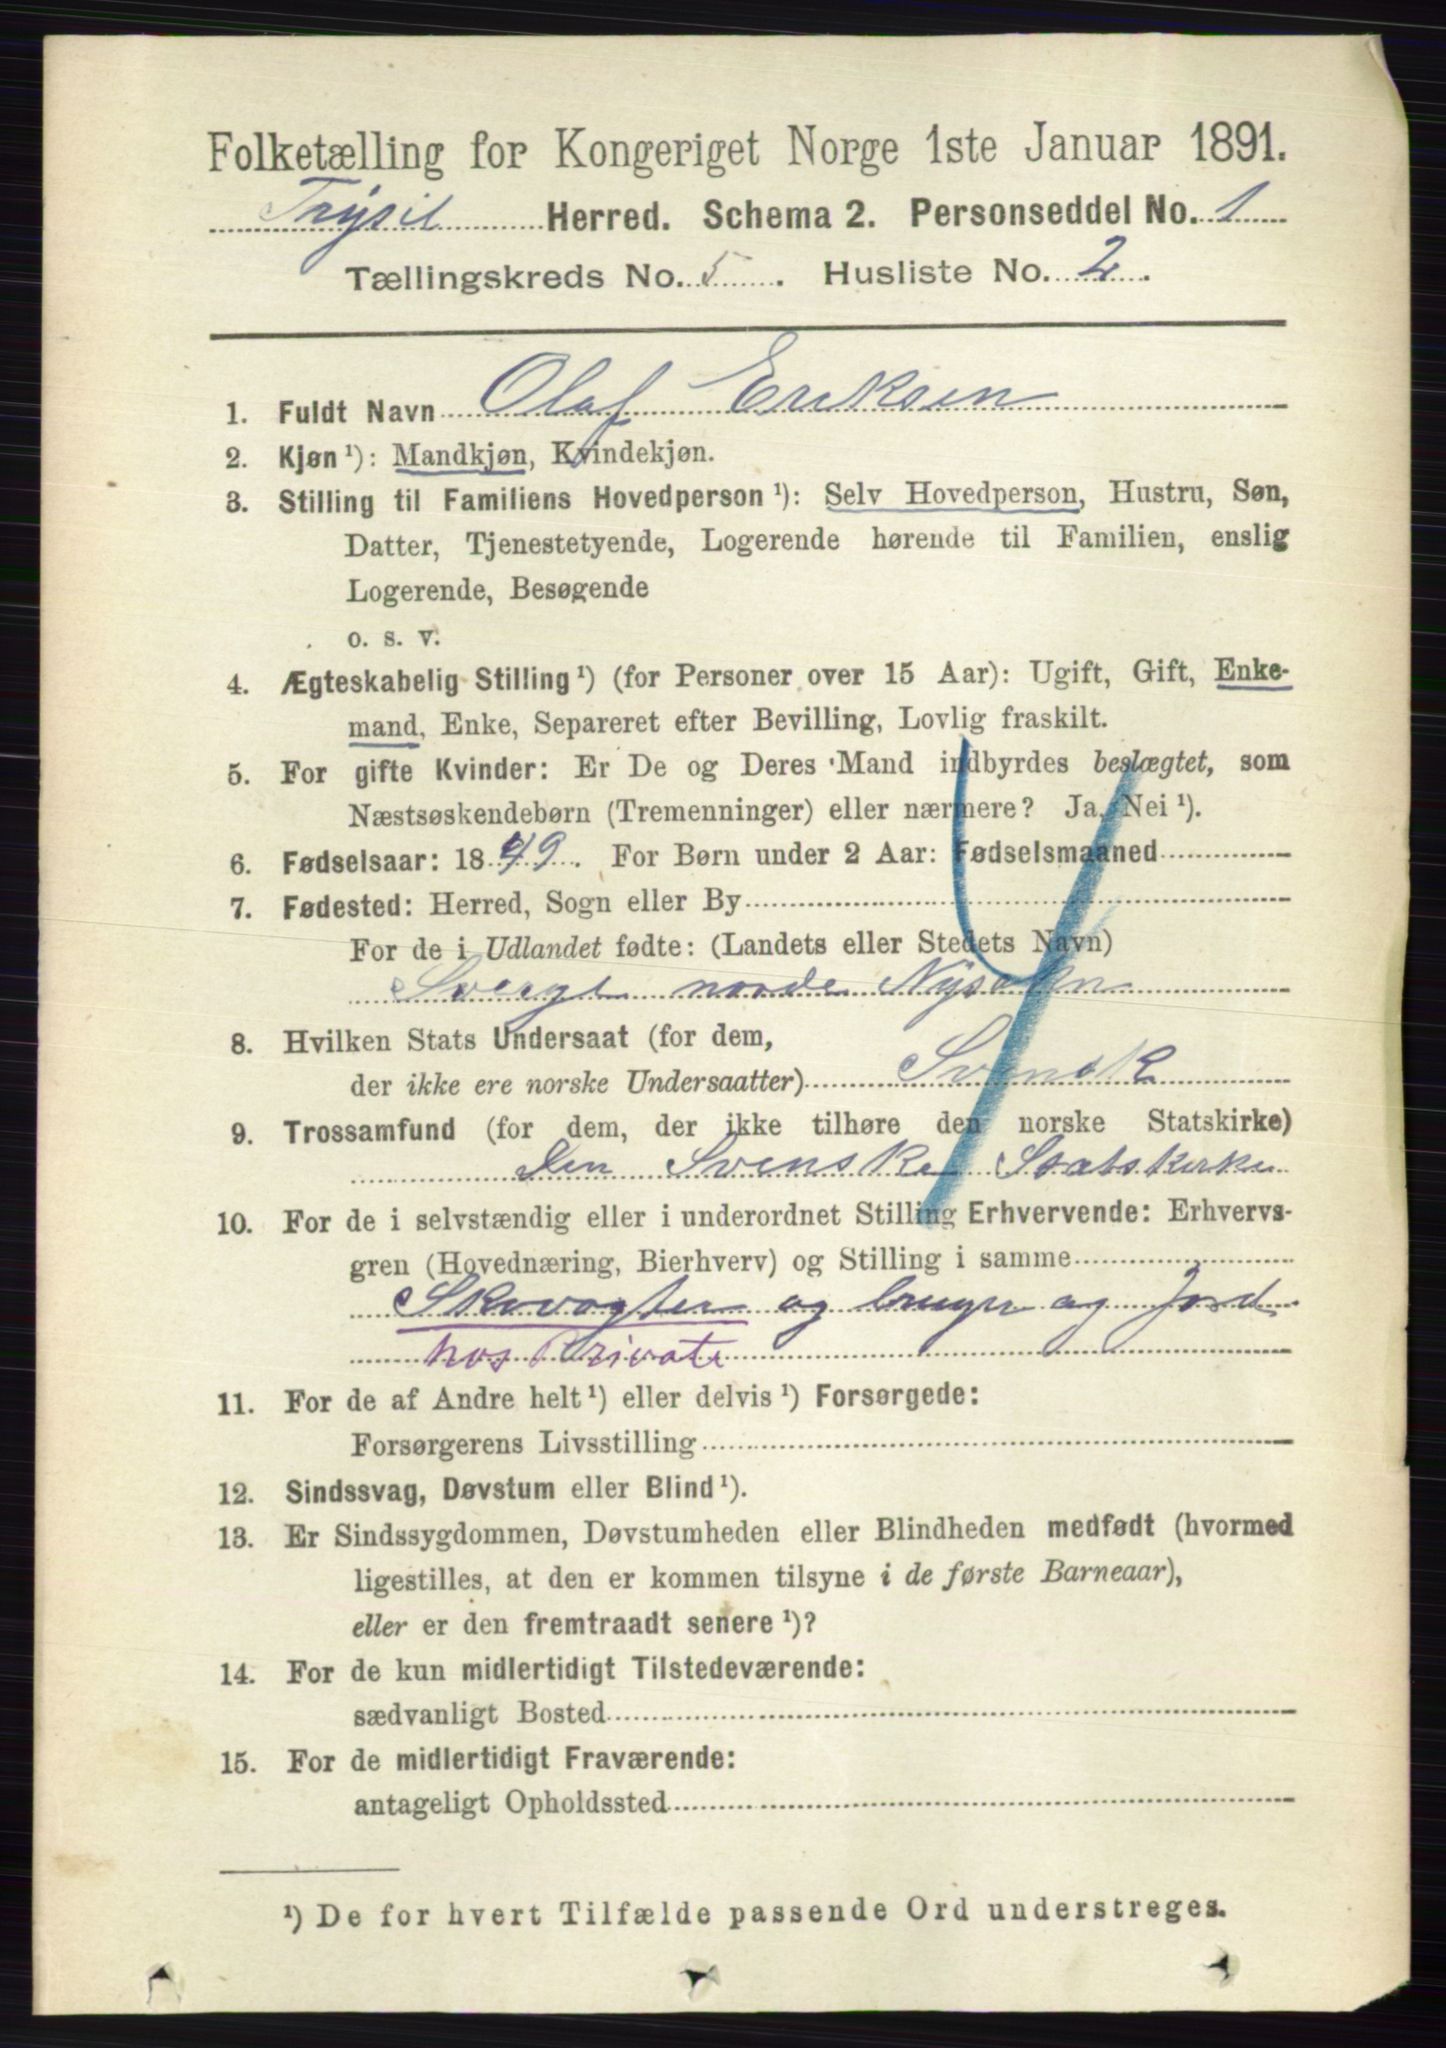 Folketælling for Kongeriget Norge 1ste Januar 1891.
Trysil Herred. Schema 2. Personseddel No. 1
Tællingskreds No. 5. Husliste No. 2.
1. Fuldt Navn Olaf Eriksen
2. Kjøn ¹): Mandkjøn, Kvindekjøn.
3. Stilling til Familiens Hovedperson ¹): Selv Hovedperson, Hustru, Søn,
Datter, Tjenestetyende, Logerende hørende til Familien, enslig
Logerende, Besøgende
o. s. v.
4. Ægteskabelig Stilling ¹) (for Personer over 15 Aar): Ugift, Gift, Enke-
mand, Enke, Separeret efter Bevilling, Lovlig fraskilt.
5. For gifte Kvinder: Er De og Deres Mand indbyrdes beslægtet, som
Næstsøskendebørn (Tremenninger) eller nærmere? Ja, Nei ¹).
6. Fødselsaar: 1849. For Børn under 2 Aar: Fødselsmaaned
7. Fødested: Herred, Sogn eller By
For de i Udlandet fødte: (Landets eller Stedets Navn)
Sverge
8. Hvilken Stats Undersaat (for dem,
der ikke ere norske Undersaatter) Svensk
9. Trossamfund (for dem, der ikke tilhøre den norske Statskirke)
Den Svenske Statskirke
10. For de i selvstændig eller i underordnet Stilling Erhvervende: Erhvervs-
gren (Hovednæring, Bierhverv) og Stilling i samme
Skovogter og bruger ag Jord
hos Private
11. For de af Andre helt ¹) eller delvis ¹) Forsørgede:
Forsørgerens Livsstilling
12. Sindssvag, Døvstum eller Blind ¹).
13. Er Sindssygdommen, Døvstumheden eller Blindheden medfødt (hvormed
ligestilles, at den er kommen tilsyne i de første Barneaar),
eller er den fremtraadt senere ¹)?
14. For de kun midlertidigt Tilstedeværende:
sædvanligt Bosted
15. For de midlertidigt Fraværende:
antageligt Opholdssted
¹) De for hvert Tilfælde passende Ord understreges.